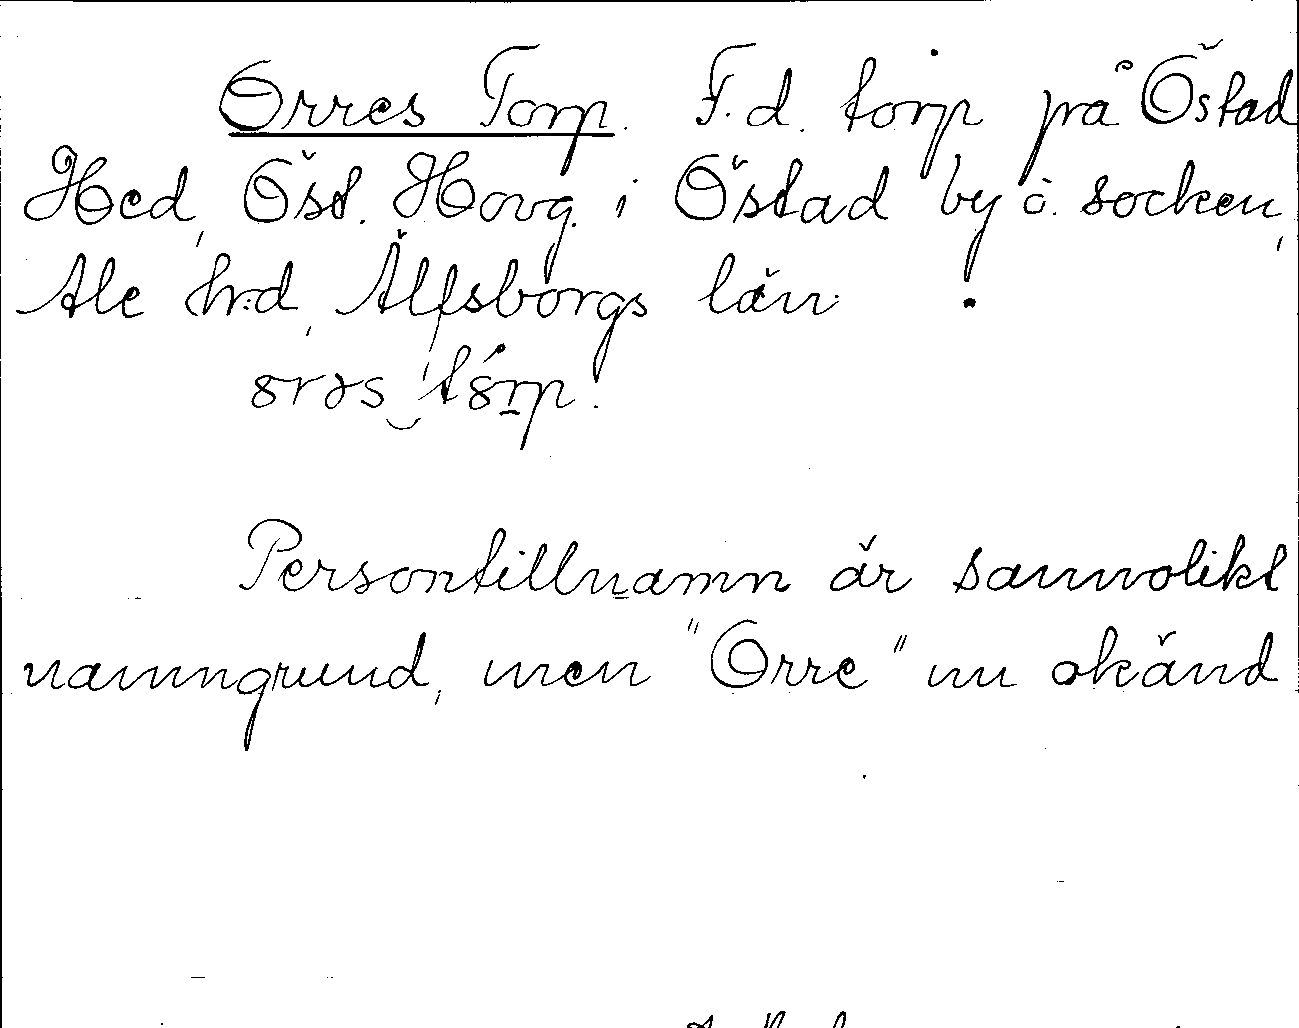 Orres Torp. F.d. torp på Östad
Hed, Öst. Hovg. i Östad by o. socken,
Ale hrd, Älfsborgs län.
Persontillnamn är sannolikt
namngrund, men "Orre" nu okänd